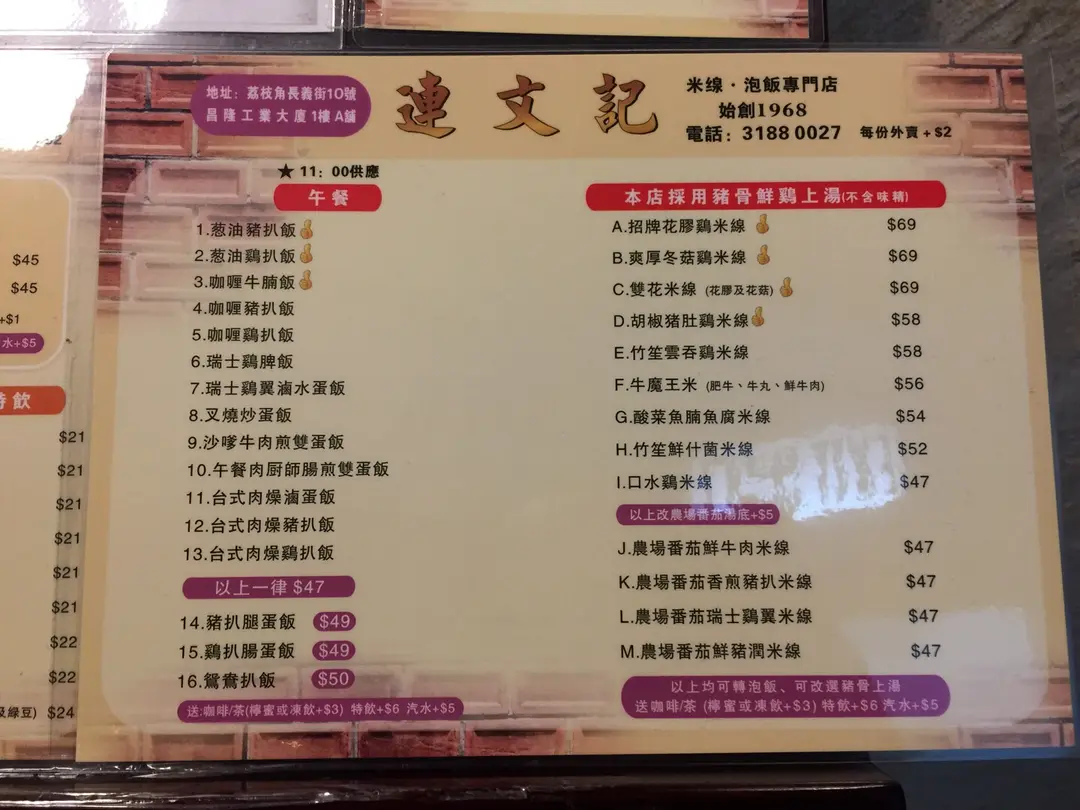 地址：荔枝角長義街10號
昌隆工業大廈1樓A舖
連文記
米线·泡飯專門店
始創1968
電話：3188 0027 每份外賣+$2
★11：00供應
午餐
1.葱油豬扒飯
2.葱油鷄扒飯
3.咖喱牛腩飯
4.咖喱豬扒飯
5.咖喱鷄扒飯
6.瑞士鷄脾飯
7.瑞士鷄翼滷水蛋飯
8.叉燒炒蛋飯
9.沙嗲牛肉煎雙蛋飯
10.午餐肉厨師腸煎雙蛋飯
11.台式肉燥滷蛋飯
12.台式肉燥豬扒飯
13.台式肉燥鷄扒飯
以上一律 $47
14.豬扒腿蛋飯 $49
15.鷄扒腸蛋飯 $49
16.鴛鴦扒飯 $50
送:咖啡/茶(檸蜜或凍飲+$3) 特飲+$6 汽水+$5
本店採用豬骨鮮鷄上湯(不含味精)
A.招牌花膠鷄米線 $69
B.爽厚冬菇鷄米線 $69
C.雙花米線 (花膠及花菇) $69
D.胡椒豬肚鷄米線 $58
E.竹笙雲吞鷄米線 $58
F.牛魔王米 (肥牛、牛丸、鮮牛肉) $56
G.酸菜魚腩魚腐米線 $54
H.竹笙鮮什菌米線 $52
I.口水鷄米線 $47
以上改農場番茄湯底+$5
J.農場番茄鮮牛肉米線 $47
K.農場番茄香煎豬扒米線 $47
L.農場番茄瑞士鷄翼米線 $47
M.農場番茄鮮豬潤米線 $47
以上均可轉泡飯、可改選豬骨上湯
送咖啡/茶 (檸蜜或凍飲+$3) 特飲+$6 汽水+$5
$45
$45
+$1
水+$5
特飲
$21
$21
$21
$21
$21
$21
$22
$22
及綠豆) $24